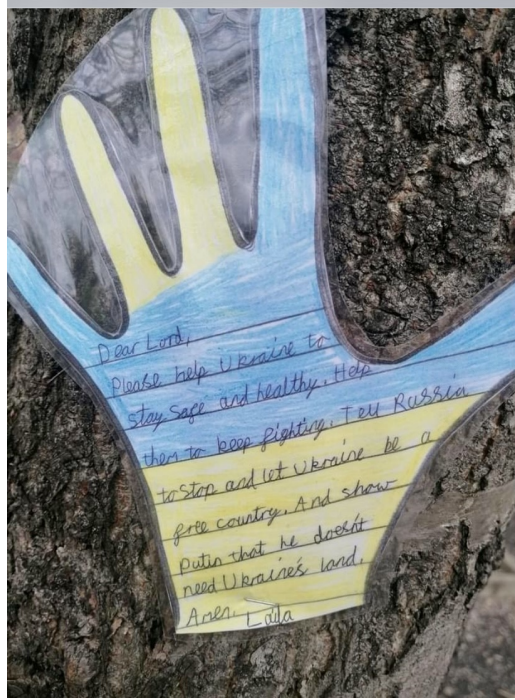 Dear Lord,
Please help Ukraine to
stay safe and healthy. Help
them to keep fighting. Tell Russia
to stop and let Ukraine be a
free country. And show
Putin that he doesn't
need Ukraine's land.
Amen. Laila